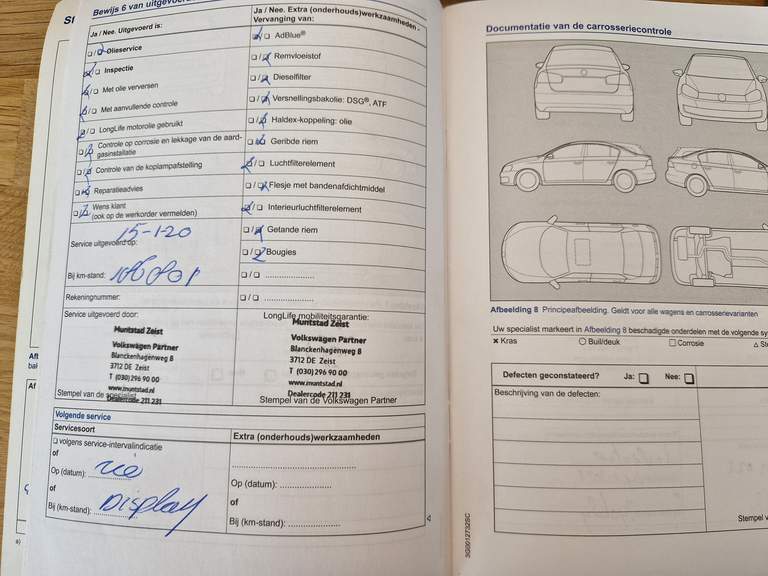 Bewijs 6 van uitgevoer
Ja / Nee. Uitgevoerd is:
❑/❑ Olieservice
❑/❑ Inspectie
❑/❑ Met olie verversen
❑/❑ Met aanvullende controle
❑/❑ LongLife motorolie gebruikt
❑/❑ Controle op corrosie en lekkage van de aard-
gasinstallatie
❑/❑ Controle van de koplampafstelling
❑/❑ Reparatieadvies
❑/❑ Wens klant
(ook op de werkorder vermelden)
Service uitgevoerd op: 15-1-20
Bij km-stand:
Rekeningnummer:
Service uitgevoerd door:
Muntstad Zeist
Volkswagen Partner
Blanckenhagenweg 8
3712 DE Zeist
T (030) 296 90 00
www.muntstad.nl
Dealercode 211 231
Stempel van de specialist
Ja / Nee. Extra (onderhouds)werkzaamheden -
Vervanging van:
❑/❑ AdBlue®
❑/❑ Remvloeistof
❑/❑ Dieselfilter
❑/❑ Versnellingsbakolie: DSG®, ATF
❑/❑ Haldex-koppeling: olie
❑/❑ Geribde riem
❑/❑ Luchtfilterelement
❑/❑ Flesje met bandenafdichtmiddel
❑/❑ Interieurluchtfilterelement
❑/❑ Getande riem
❑/❑ Bougies
❑/❑ ....................
❑/❑ ....................
LongLife mobiliteitsgarantie:
Muntstad Zeist
Volkswagen Partner
Blanckenhagenweg 8
3712 DE Zeist
T (030) 296 90 00
www.muntstad.nl
Dealercode 211 231
Stempel van de Volkswagen Partner
Volgende service
Servicesoort
❑ volgens service-intervalindicatie
of
Op (datum): zie
of
Bij (km-stand): Display
Extra (onderhouds)werkzaamheden
....................
Op (datum): ....................
of
Bij (km-stand): ....................
Documentatie van de carrosseriecontrole
Afbeelding 8 Principeafbeelding. Geldt voor alle wagens en carrosserievarianten
Uw specialist markeert in Afbeelding 8 beschadigde onderdelen met de volgende sy
× Kras ○ Buil/deuk □ Corrosie △ Ste
Defecten geconstateerd? Ja: ❑ Nee: ❑
Beschrijving van de defecten:
Stempel v
3G0012732SC